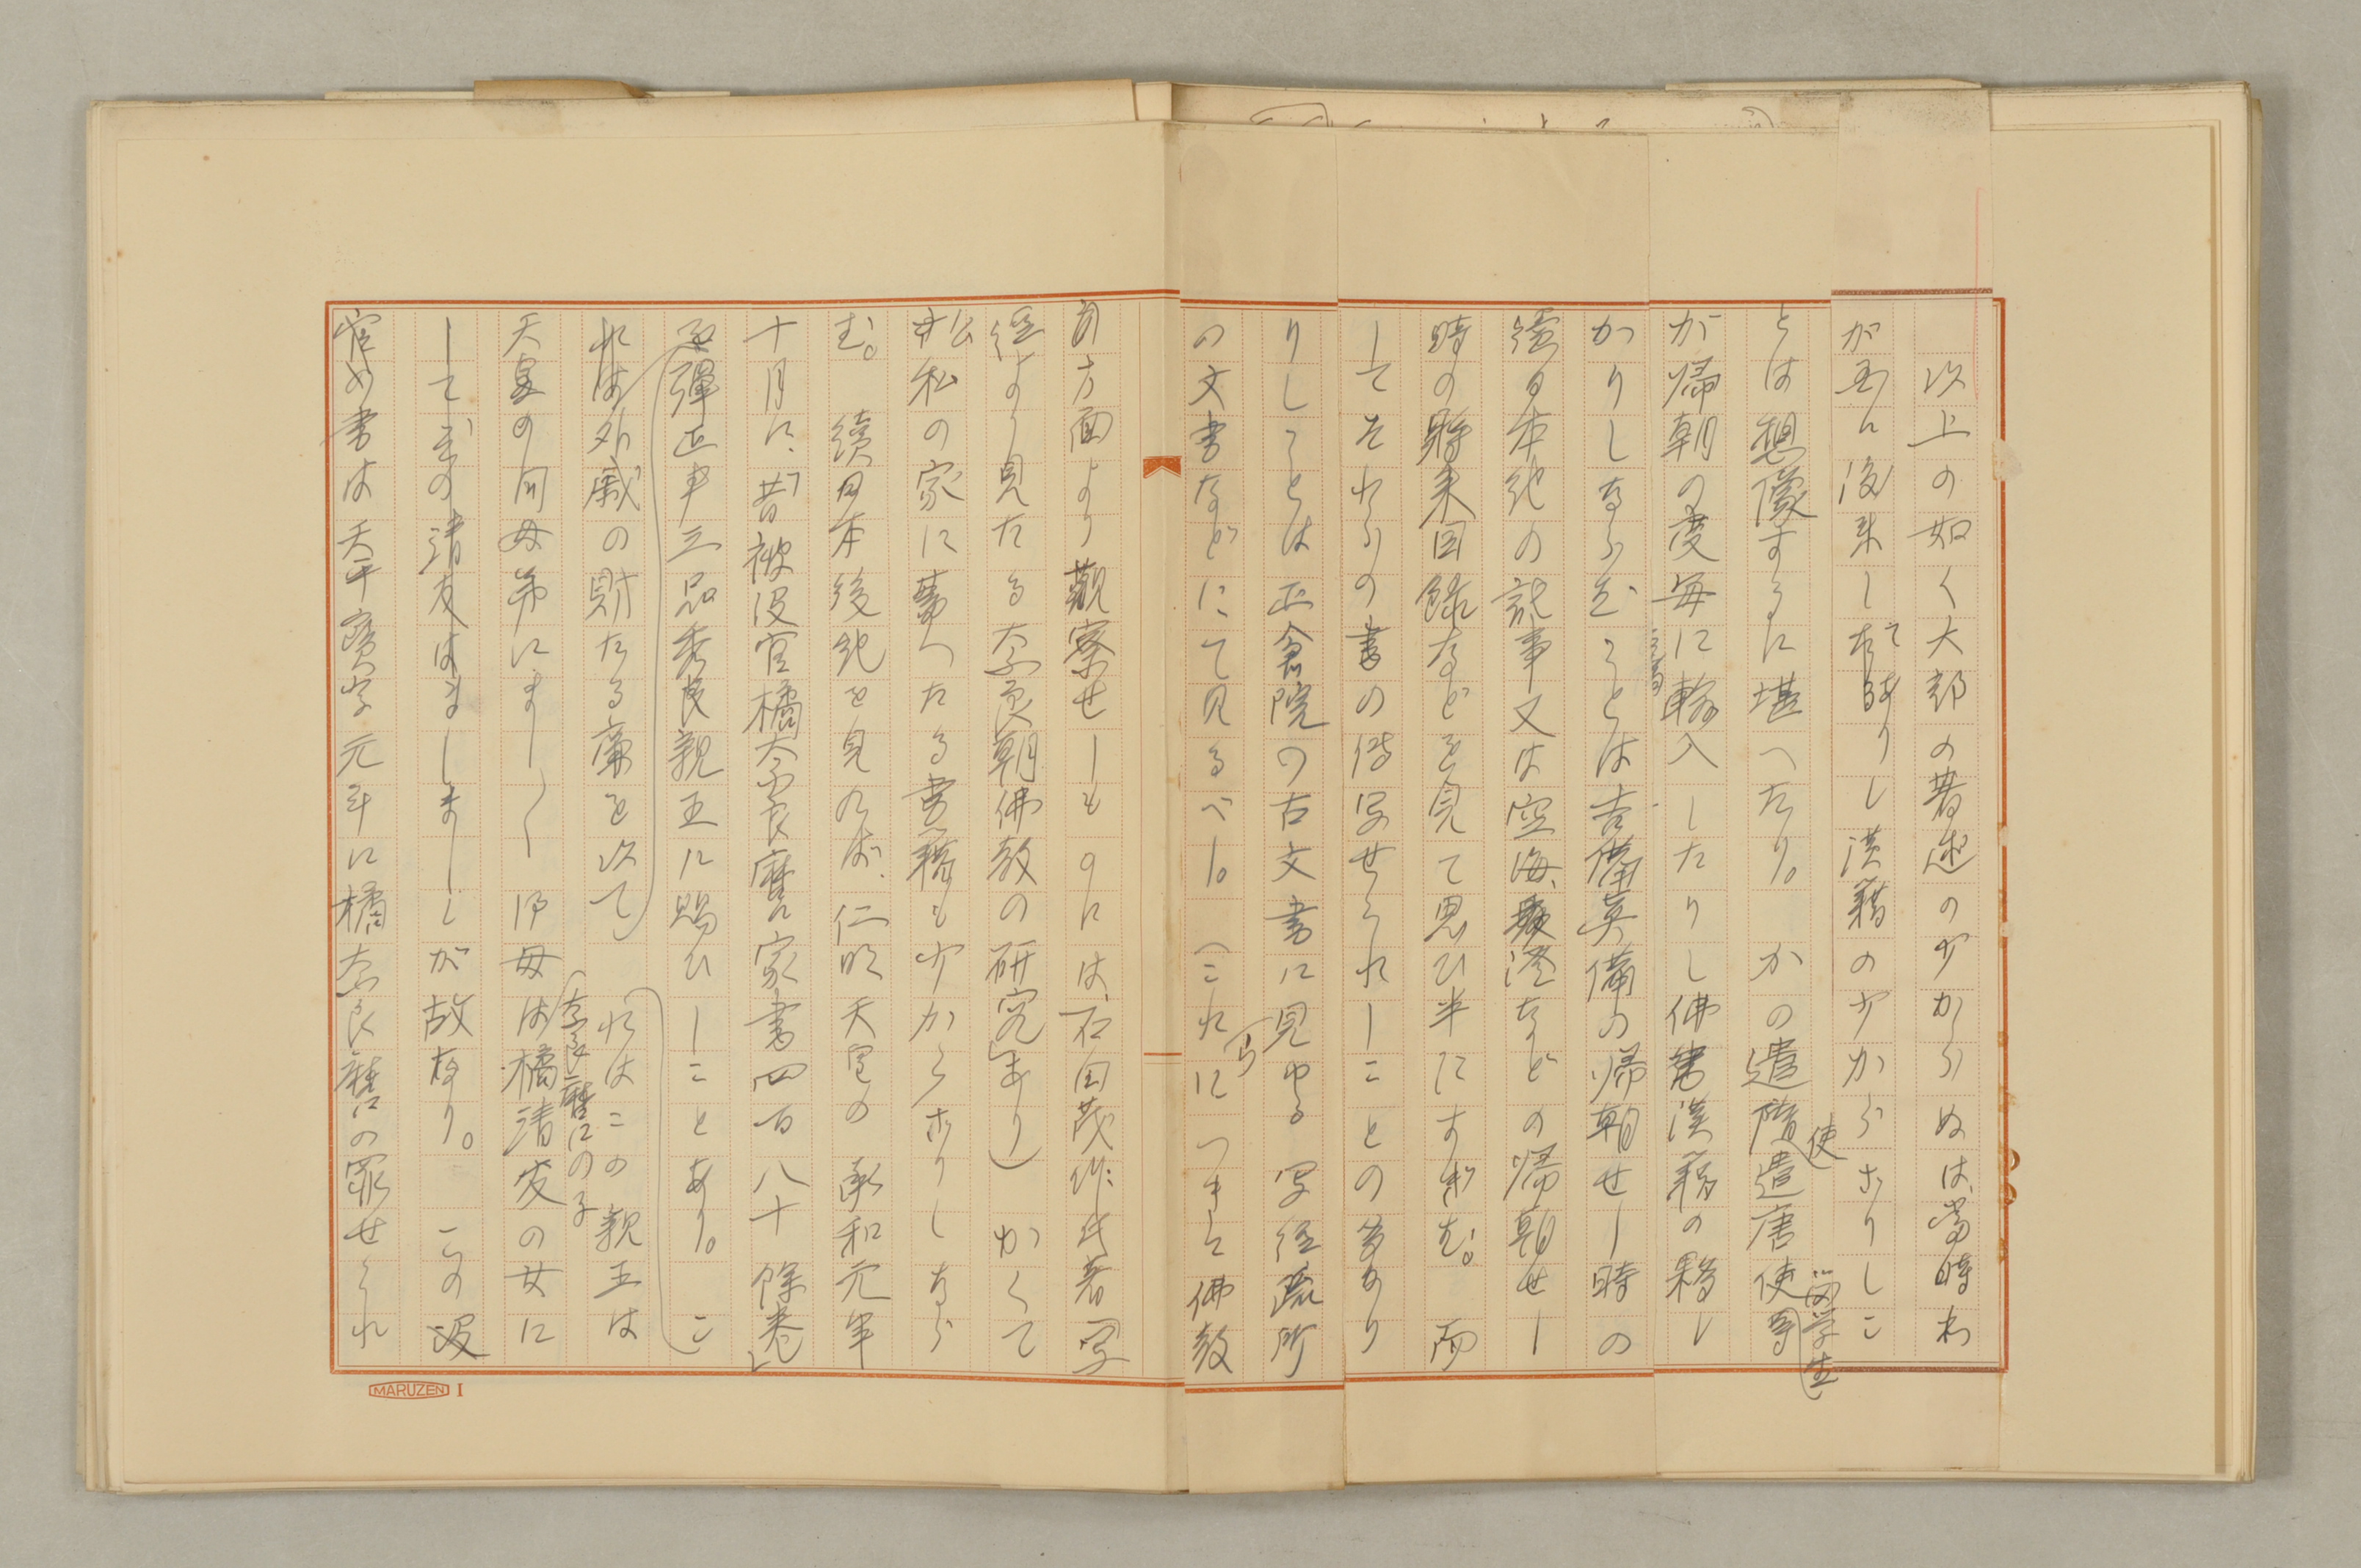 以上の如く大部の著述の少からぬは、当時わ
が国に渡来してありし漢籍の少からざりしこ
とは想像するに堪へたり。かの遣隋使遣唐使
留学生
が帰朝の度毎に輸入したりし佛書漢籍の夥し
かりしならむことは吉備真備の帰朝せし時の
續日本紀の記事又は空海、最澄などの帰朝せし
時の将来目録などを見て思ひ半にすぎむ。而
してそれらの書の傳写せられしことの多かり
りしことは正倉院の古文書に見ゆる写経疏所
の文書などにて見るべし。(これらにつきて佛教
の方面より觀察せしものには、石田茂作氏著写
経より見たる奈良朝佛教の研究あり)かくて
公私の家に藏へたる書籍も少からざりしなら
む。續日本後紀を見れば、仁明天皇の承和元年
十月に、「昔被没官橘奈良麿家書四百八十餘巻」
を彈正尹三品秀良親王に賜ひしことあり。こ
れは外戚の財たる廉を以て れはこの親王は
奈良麿の子
天皇の同母弟にまし〳〵 御母は橘清友の女に
してその清友は
ましましゝが故なり。この没
官の書は天平寶字元年に橘奈良麿の罪せられ
MARUZEN I